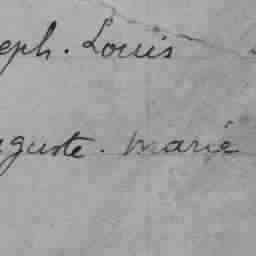 eph. Louis
guste. marié